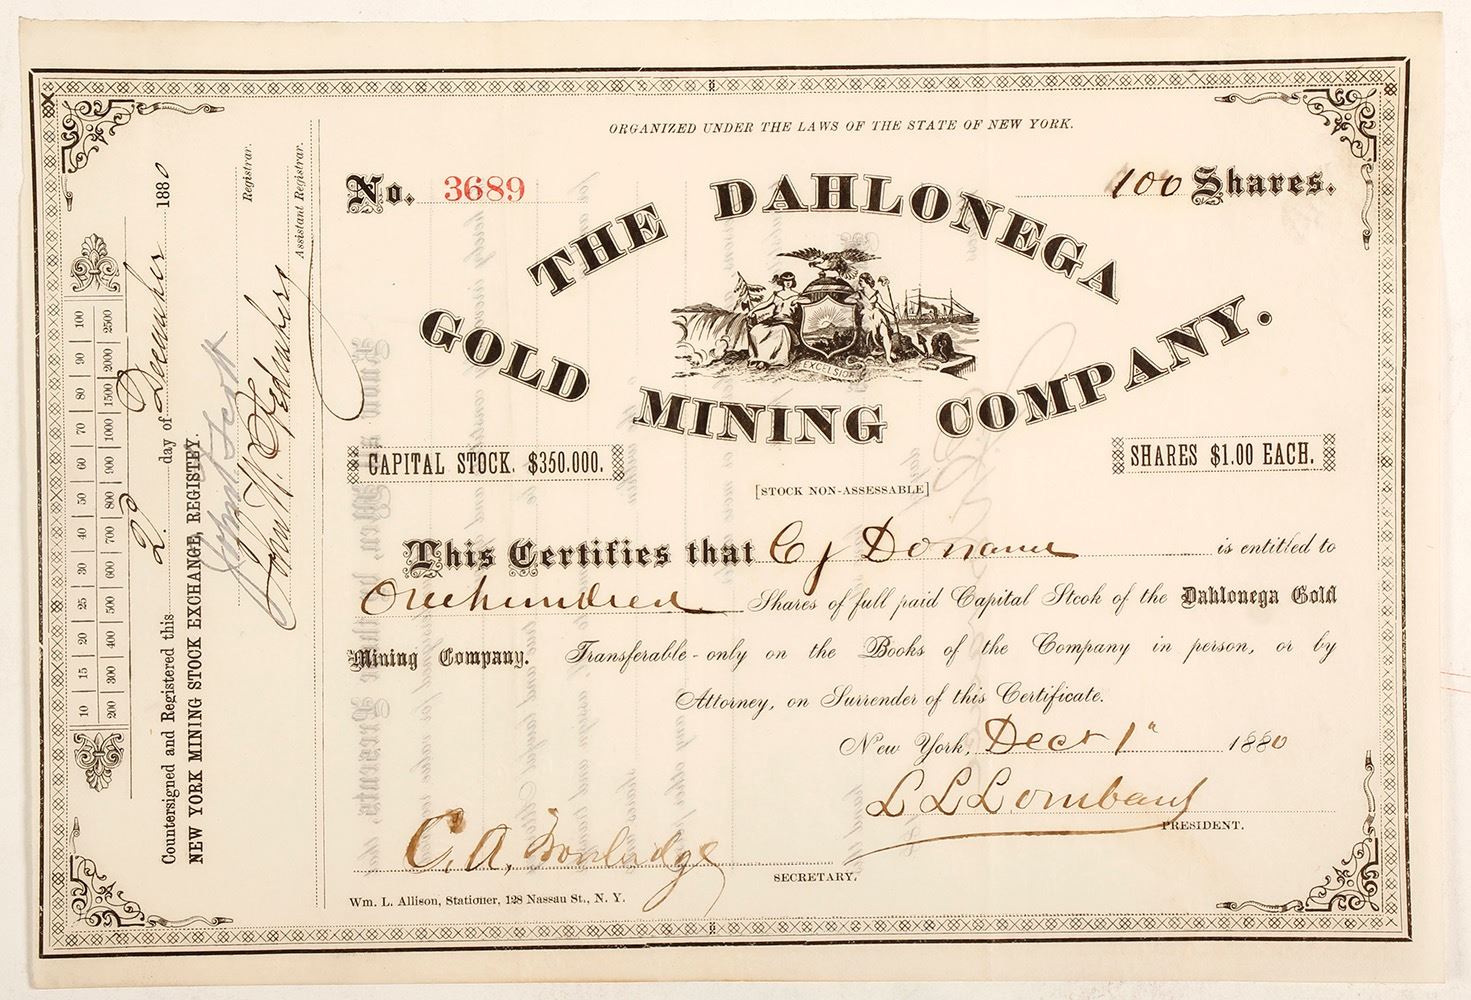 ORGANIZED UNDER THE LAWS OF THE STATE OF NEW YORK.
No. 3689
100 Shares.
THE DAHLONEGA
GOLD MINING COMPANY.
EXCELSIOR
CAPITAL STOCK. $350.000.
SHARES $1.00 EACH.
[STOCK NON-ASSESSABLE]
This Certifies that C J Donaune is entitled to
One hundred Shares of full paid Capital Stcok of the Dahlonega Gold
Mining Company. Transferable - only on the Books of the Company in person, or by
Attorney, on Surrender of this Certificate.
New York, Dect 1st 1880
L L Lombard
PRESIDENT.
C. A.
SECRETARY.
Wm. L. Allison, Stationer, 128 Nassau St., N. Y.
10 15 20 25 30 40 50 60 70 80 90 100
200 300 400 500 600 700 800 900 1000 1500 2000 2500
Countersigned and Registered this 2d day of December 1880
NEW YORK MINING STOCK EXCHANGE, REGISTRY.
John Scott
Registrar.
John W.
Assistant Registrar.